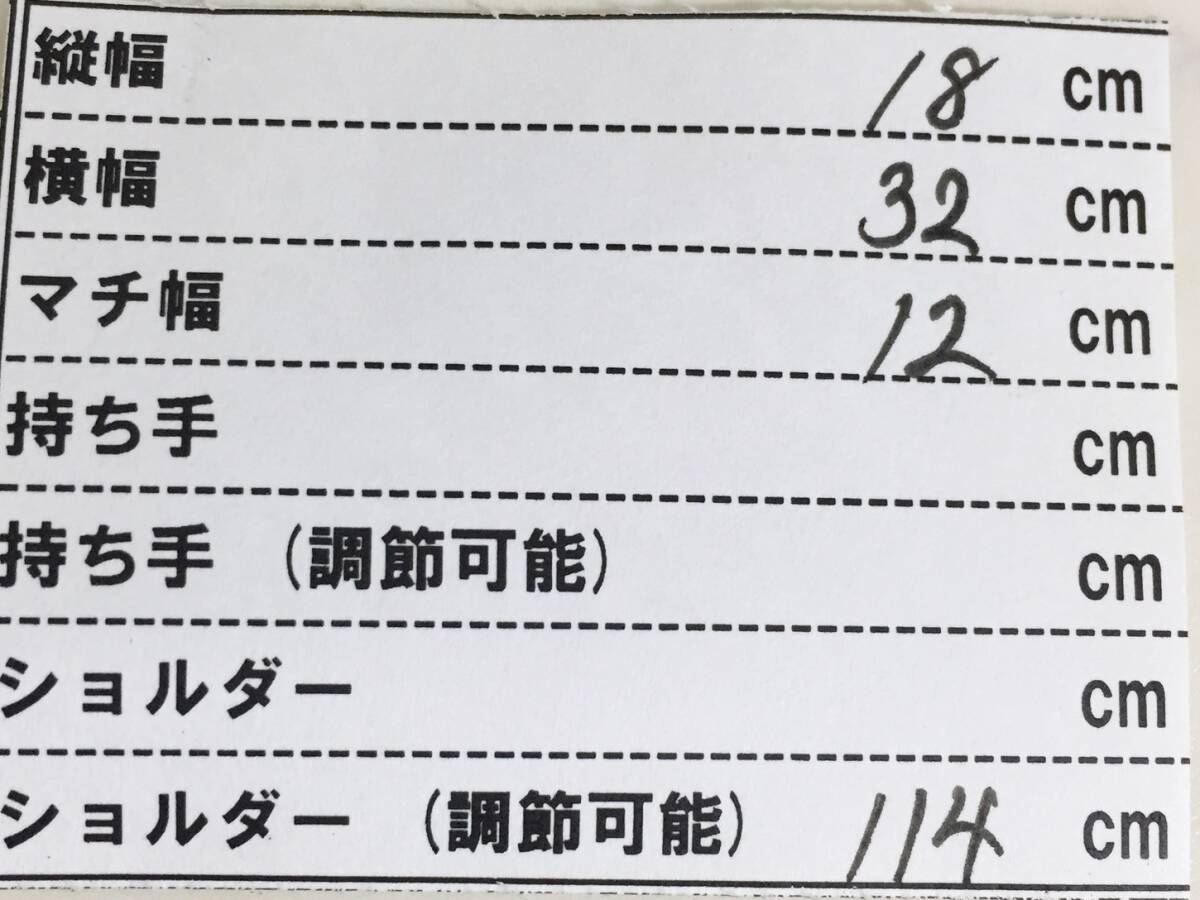 縦幅 18 cm
横幅 32 cm
マチ幅 12 cm
持ち手 cm
持ち手 (調節可能) cm
ショルダー cm
ショルダー (調節可能) 114 cm